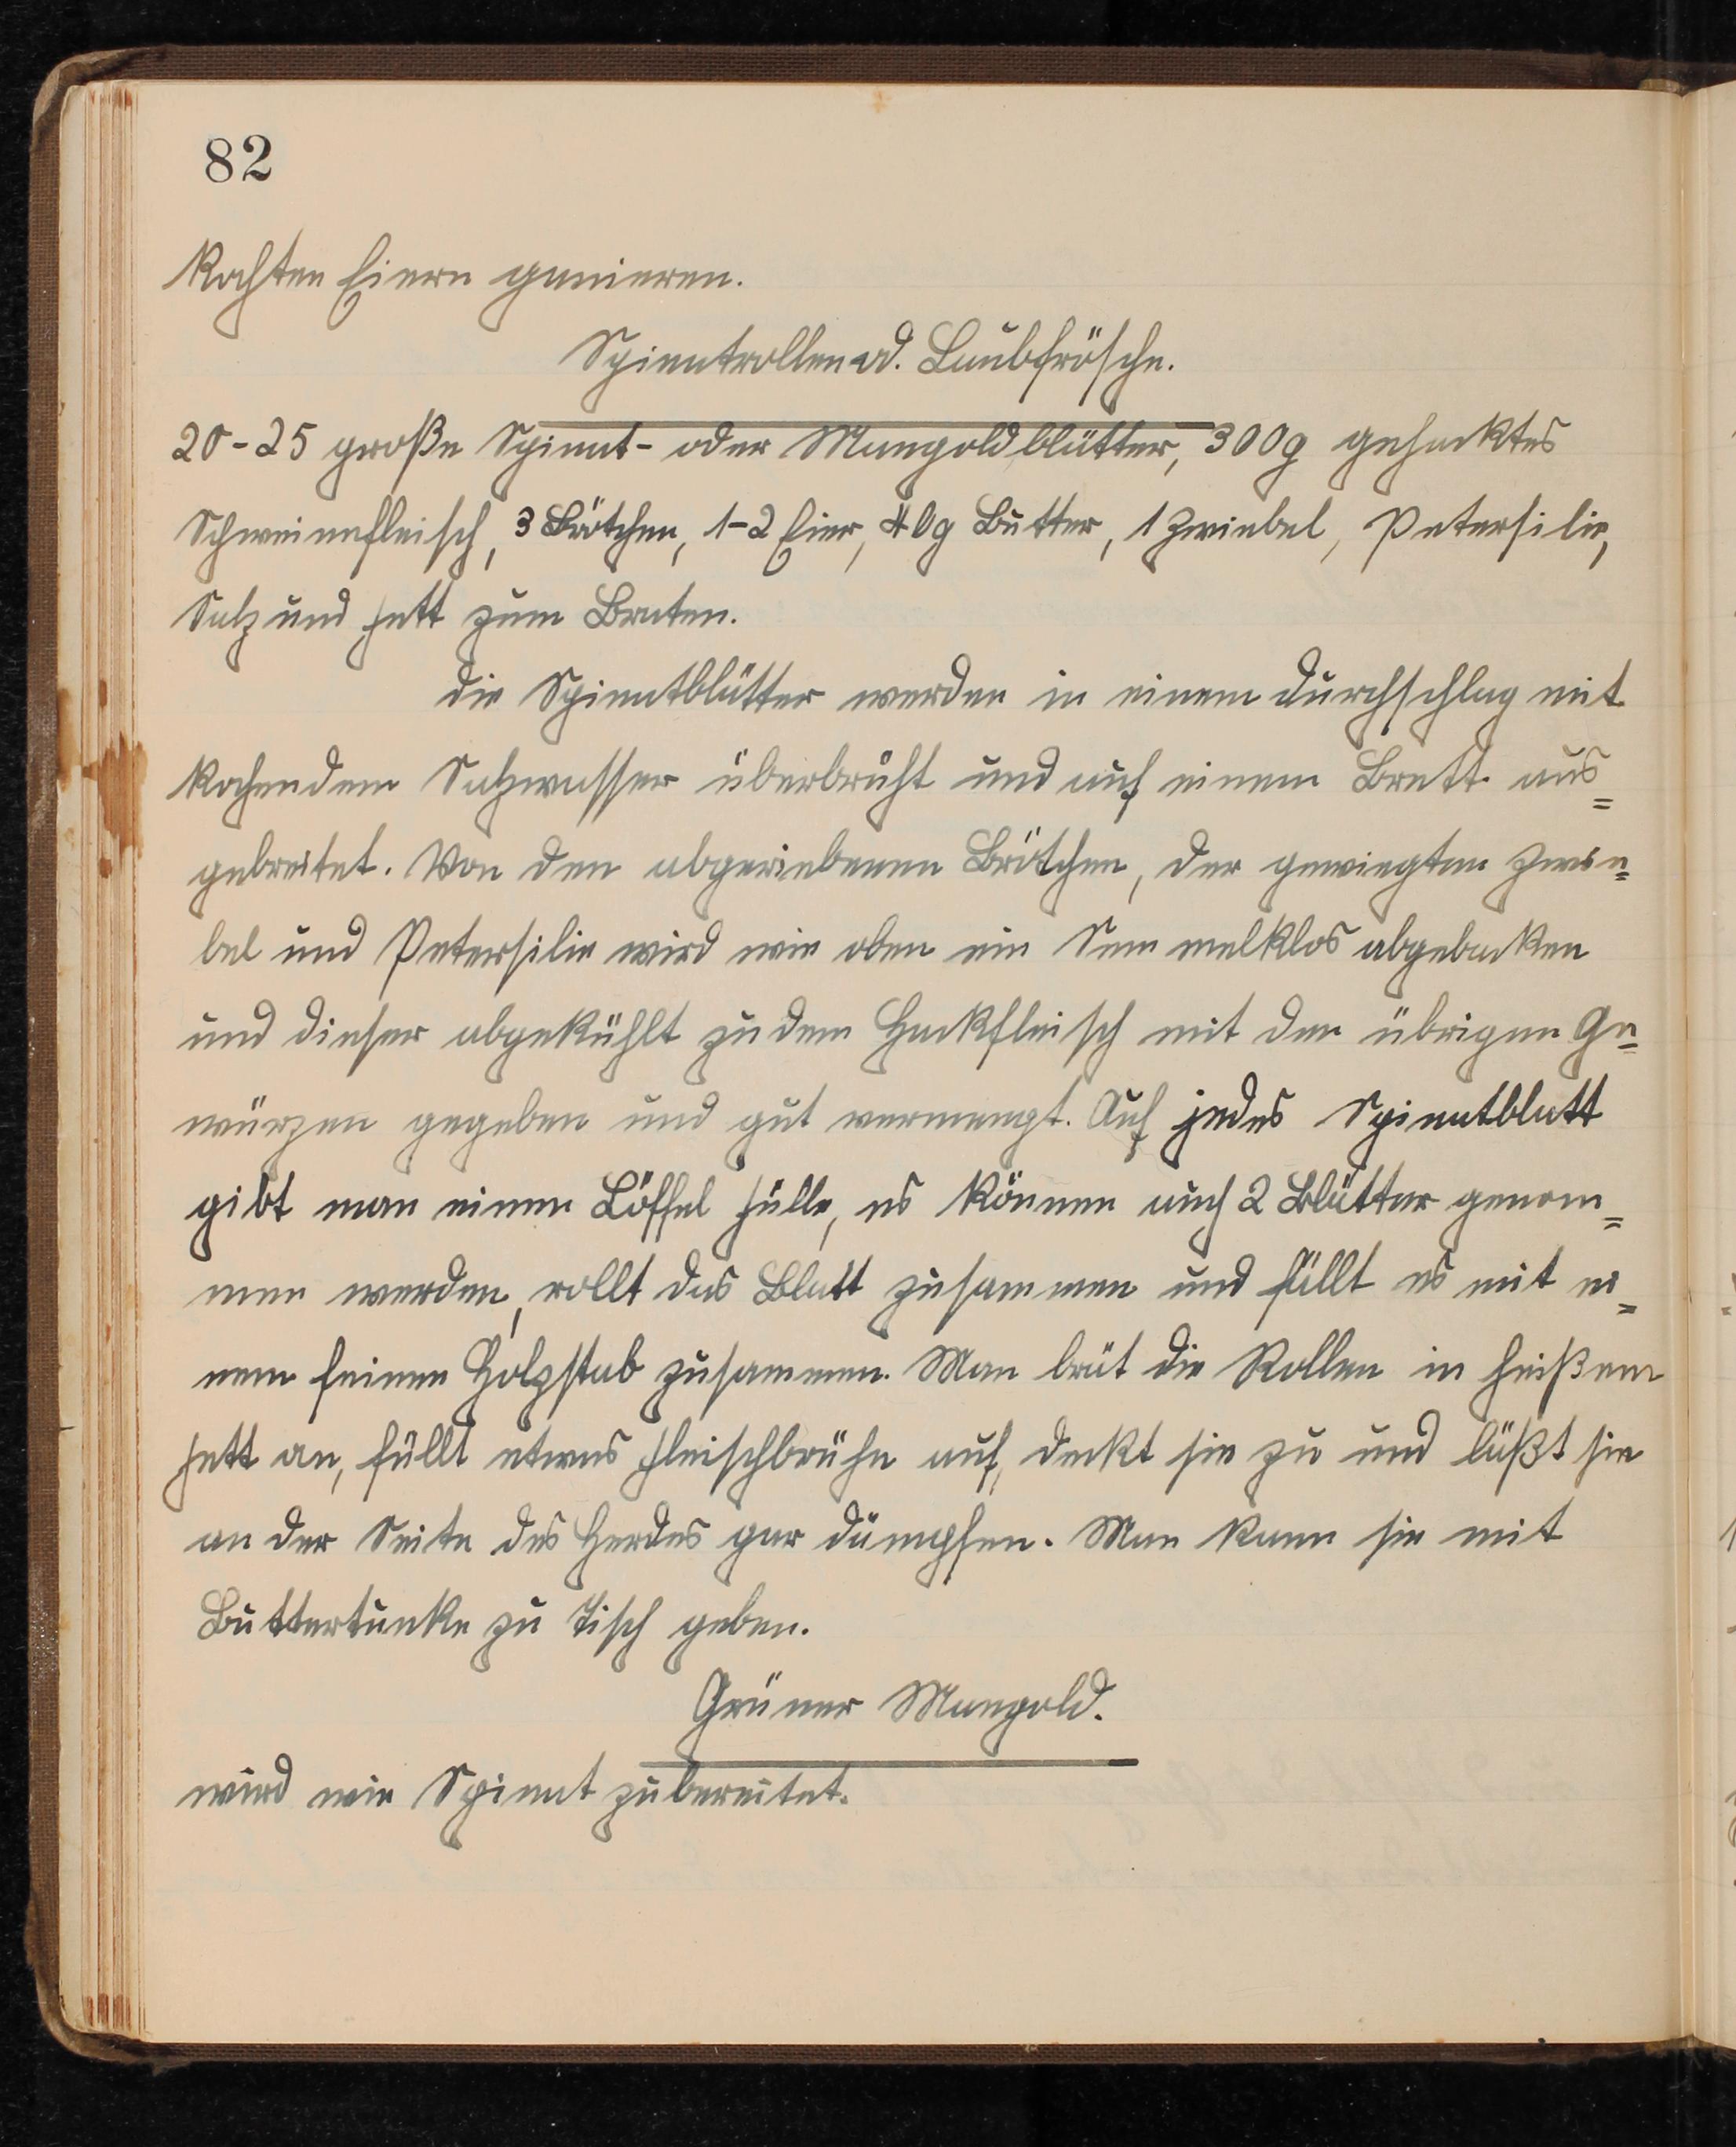 82
kochten Eiern garnieren.
Spinatrollen od. Laubfrösche.
20-25 große Spinat- oder Mangoldblätter, 300g gehacktes
Schweinefleisch, 3 Brötchen, 1-2 Eier, 40g Butter, 1 Zwiebel, Petersilie,
Salz und Fett zum Braten.
Die Spinatblätter werden in einem Durchschlag mit
kochendem Salzwasser überbrüht und auf einem Brett aus=
gebreitet. Von den abgeriebenen Brötchen, der gewiegten Zwie=
bel und Petersilie wird wie oben ein Semmelklos abgebacken
und dieser abgekühlt zu dem Hackfleisch mit den übrigen Ge=
würzen gegeben und gut vermengt. Auf jedes Spinatblatt
gibt man einen Löffel Fülle, es können auch 2 Blätter genom=
men werden, rollt das Blatt zusammen und hält es mit ei=
nem feinen Holzstab zusammen. Man brät die Rollen in heißem
Fett an, füllt etwas Fleischbrühe auf, deckt sie zu und läßt sie
an der Seite des Herdes gar dämpfen. Man kann sie mit
Buttertunke zu Tisch geben.
Grüner Mangold.
wird wie Spinat zubereitet.